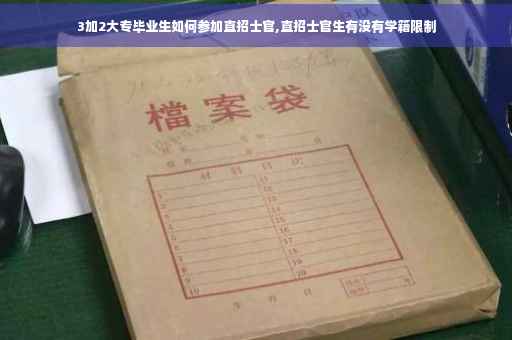 3加2大专毕业生如何参加直招士官,直招士官生有没有学藉限制
檔案袋
材料目次
1
2
3
4
5
6
7
8
9
10
11
12
13
14
15
16
17
18
19
20
年 月 日